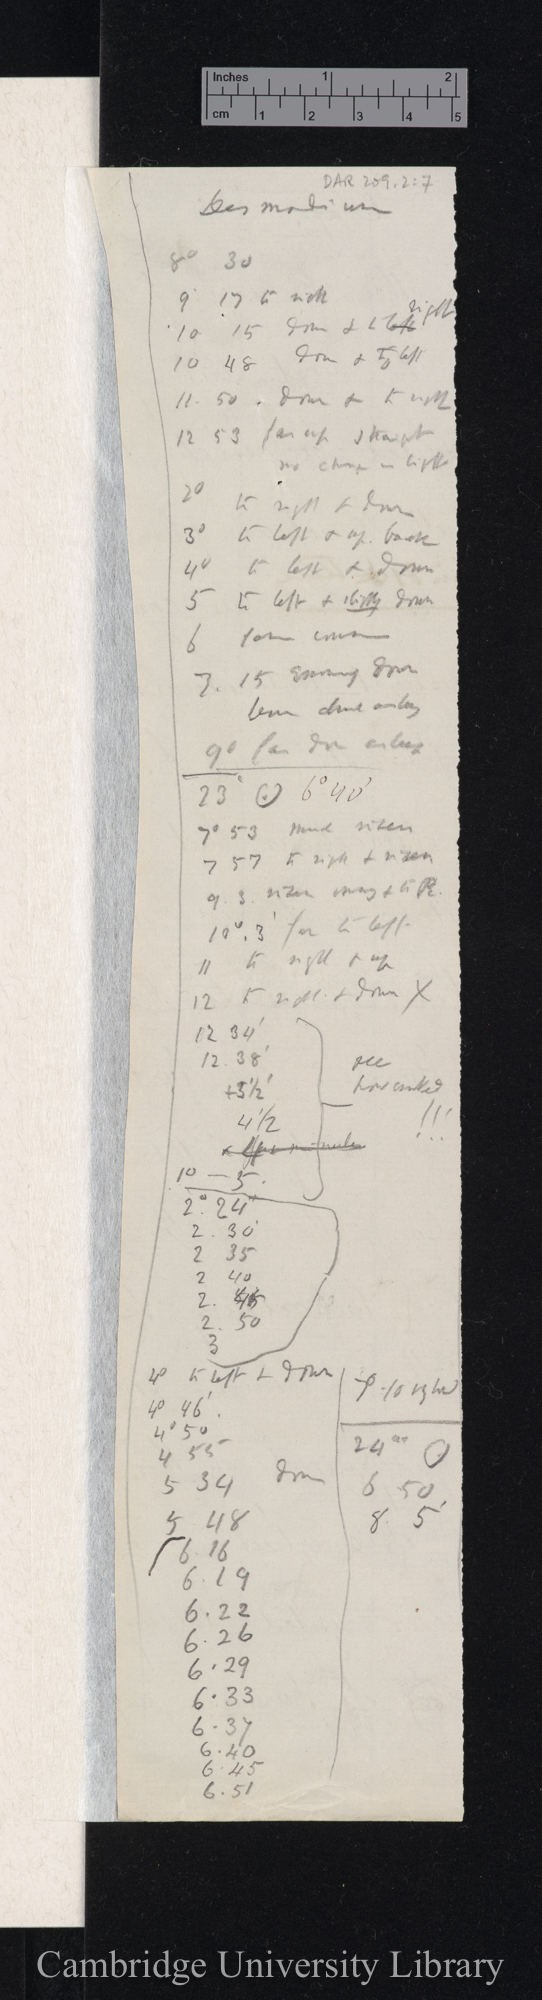 Inches 1 2
cm 1 2 3 4 5
DAR 209.2:7
Desmodium
8° 30
9 17 to right
10 15 down & to left right
10 48 down & to left
11. 50. down & to right
12 53 far up straight
no change in light
2° to right & down
3° to left & up. back
4° to left & down
5 to left & slightly down
6 same course
7. 15 down
9° far down asleep
23° 6° 40'
7° 53 much risen
7 57 to right & risen
9. 3. risen & to R.
10°. 3' far to left
11 to right & up
12 to right & down X
12 34'
12. 38'
+3½'
4½
see
how
!!!
10 — 5.
2°. 24'
2. 30'
2 35
2 40
2. 45
2. 50
3
4° to left & down
4° 46'.
4° 50
4 55
5 34 down
5 48
6. 16
6. 19
6. 22
6. 26
6. 29
6. 33
6. 37
6. 40
6. 45
6. 51
24
6 50'
8. 5'
Cambridge University Library